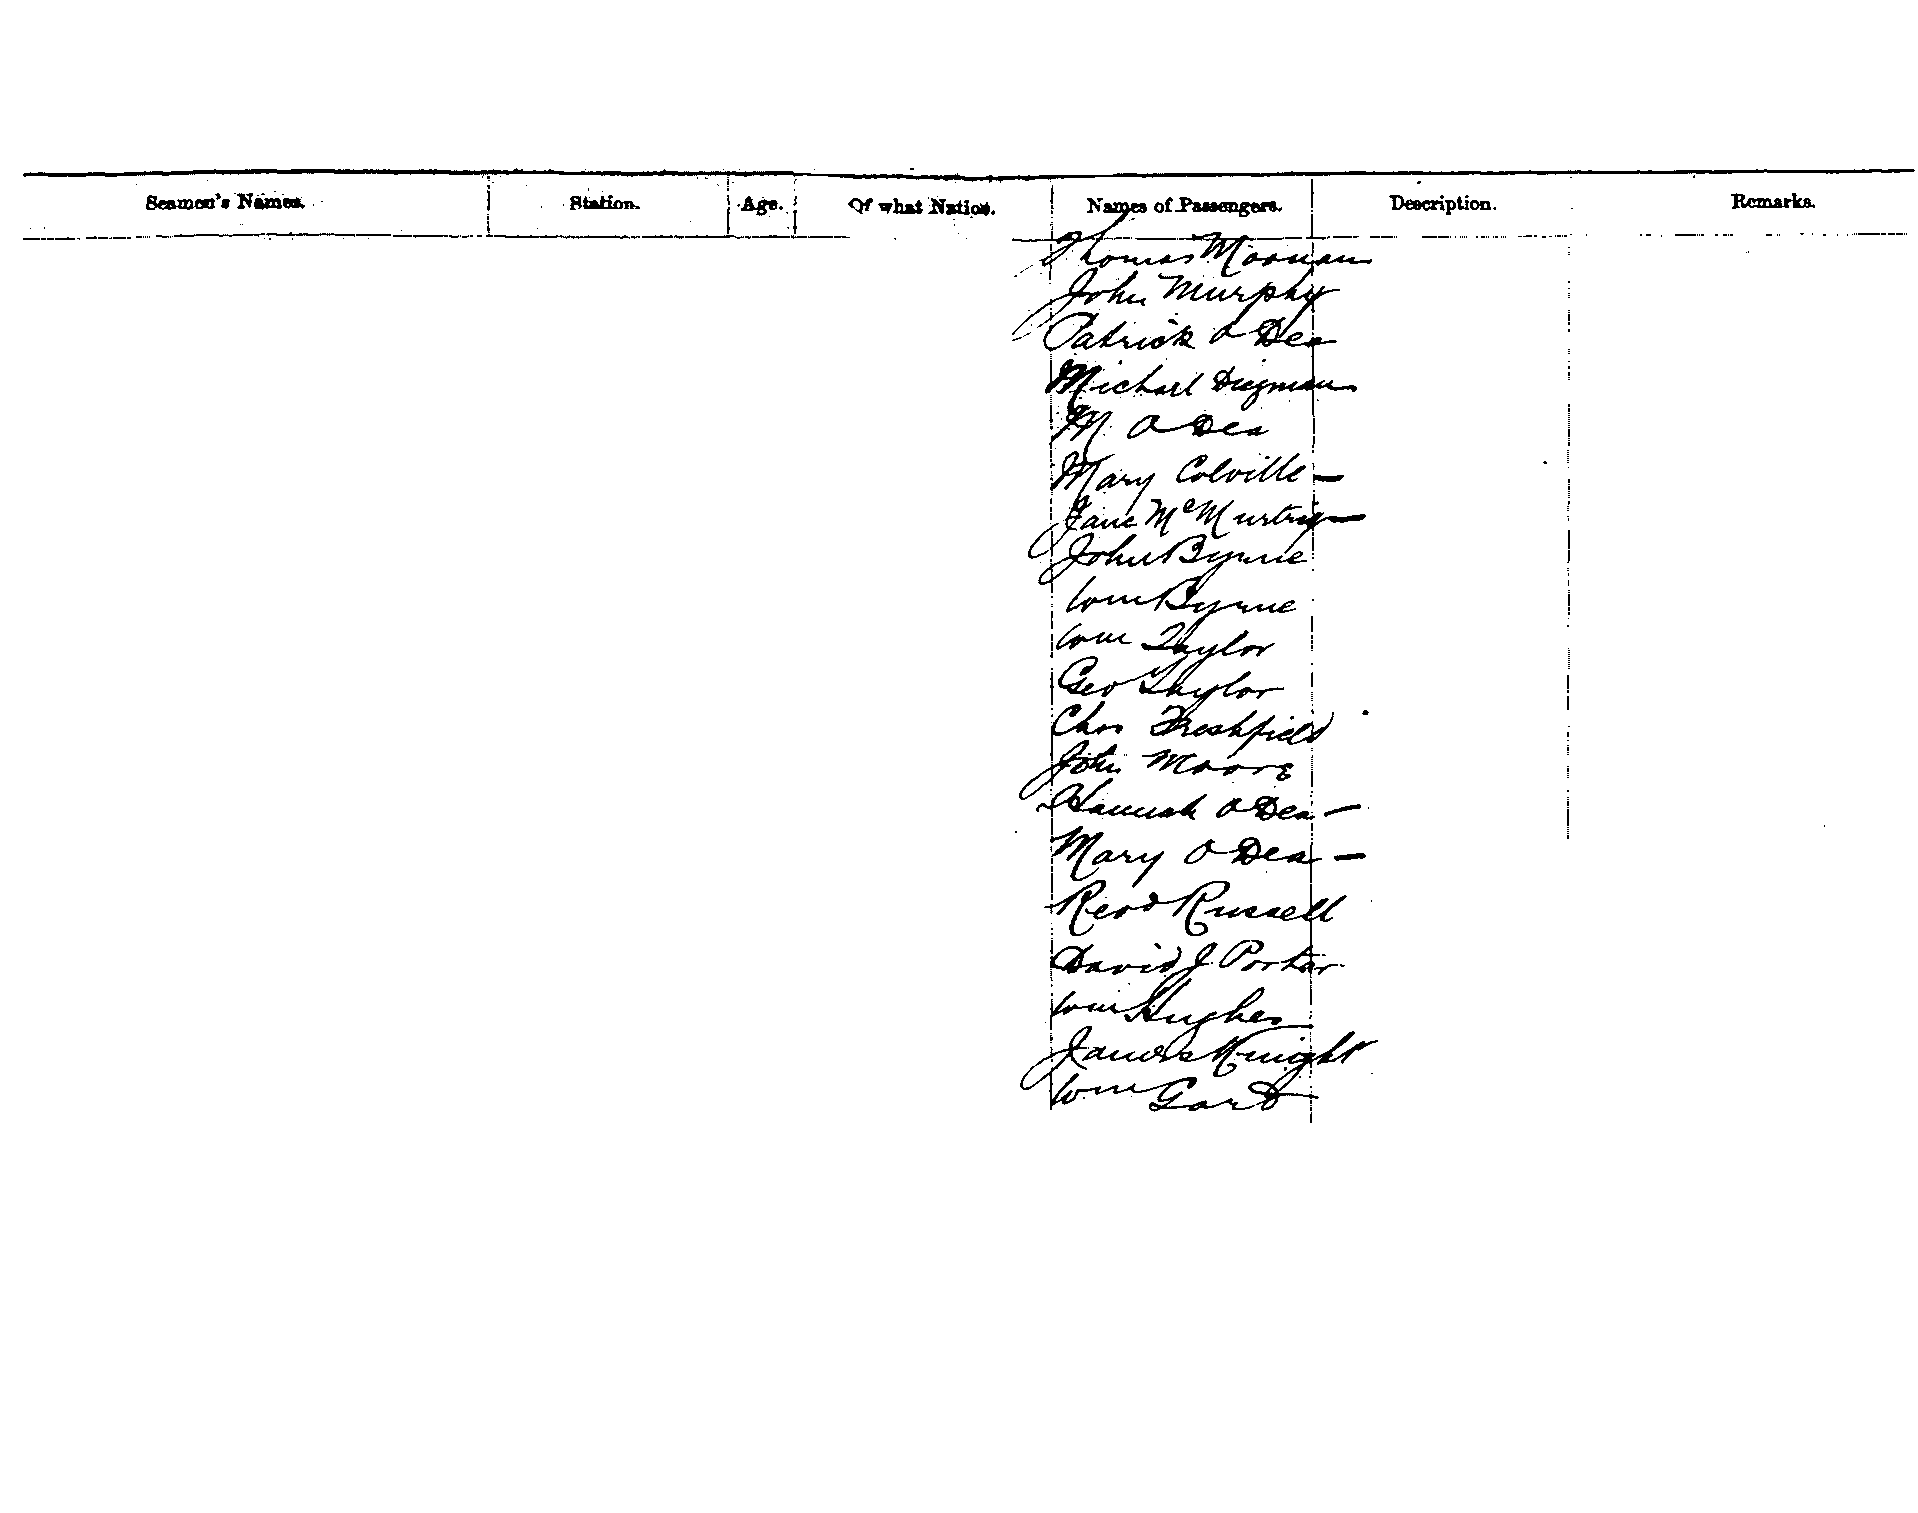 Seamen's Names. Station. Age. Of what Nation. Names of Passengers. Description. Remarks.
Thomas Moonan
John Murphy
Patrick O Dea
Michael Diegman
M O Dea
Mary Colville —
Jane McMurtrey —
John Byrne
Wm Byrne
Wm Taylor
Geo Taylor
Chas Freshfield
John Moore
Hannah O Dea —
Mary O Dea —
Revd Russell
David J Porter
Wm Hughes
James Knight
Wm Gard